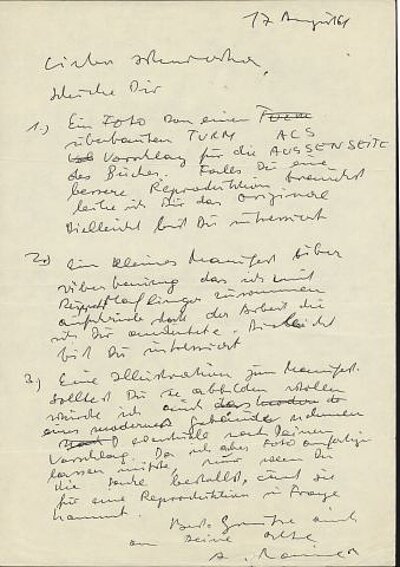 17 August 61
Lieber
schicke Dir
1.) Ein FOTO von einem Turm
überbauten TURM ALS
Vorschlag für die AUSSENSEITE
des Buches. Falls Du eine
bessere Reproduktion brauchst
leihe ich Dir das original
Vielleicht bist Du interessiert
2.) ein kleines Manifest über
überbauung das ich mit
zusammen
der Arbeit die
ich Dir andeutete. Vielleicht
bist Du interessiert
3.) Eine Illustration zum Manifest.
Solltest Du sie abbilden wollen
würde ich auch
eines modernen Gebäudes nehmen
eventuell nach Deinem
Vorschlag. Da ich aber Foto anfertigen
lassen müsste, nur wenn Du
die Sache bestellst, damit sie
für eine Reproduktion in Frage
kommt.
Beste Grüsse auch
an Deine
A. Rainer